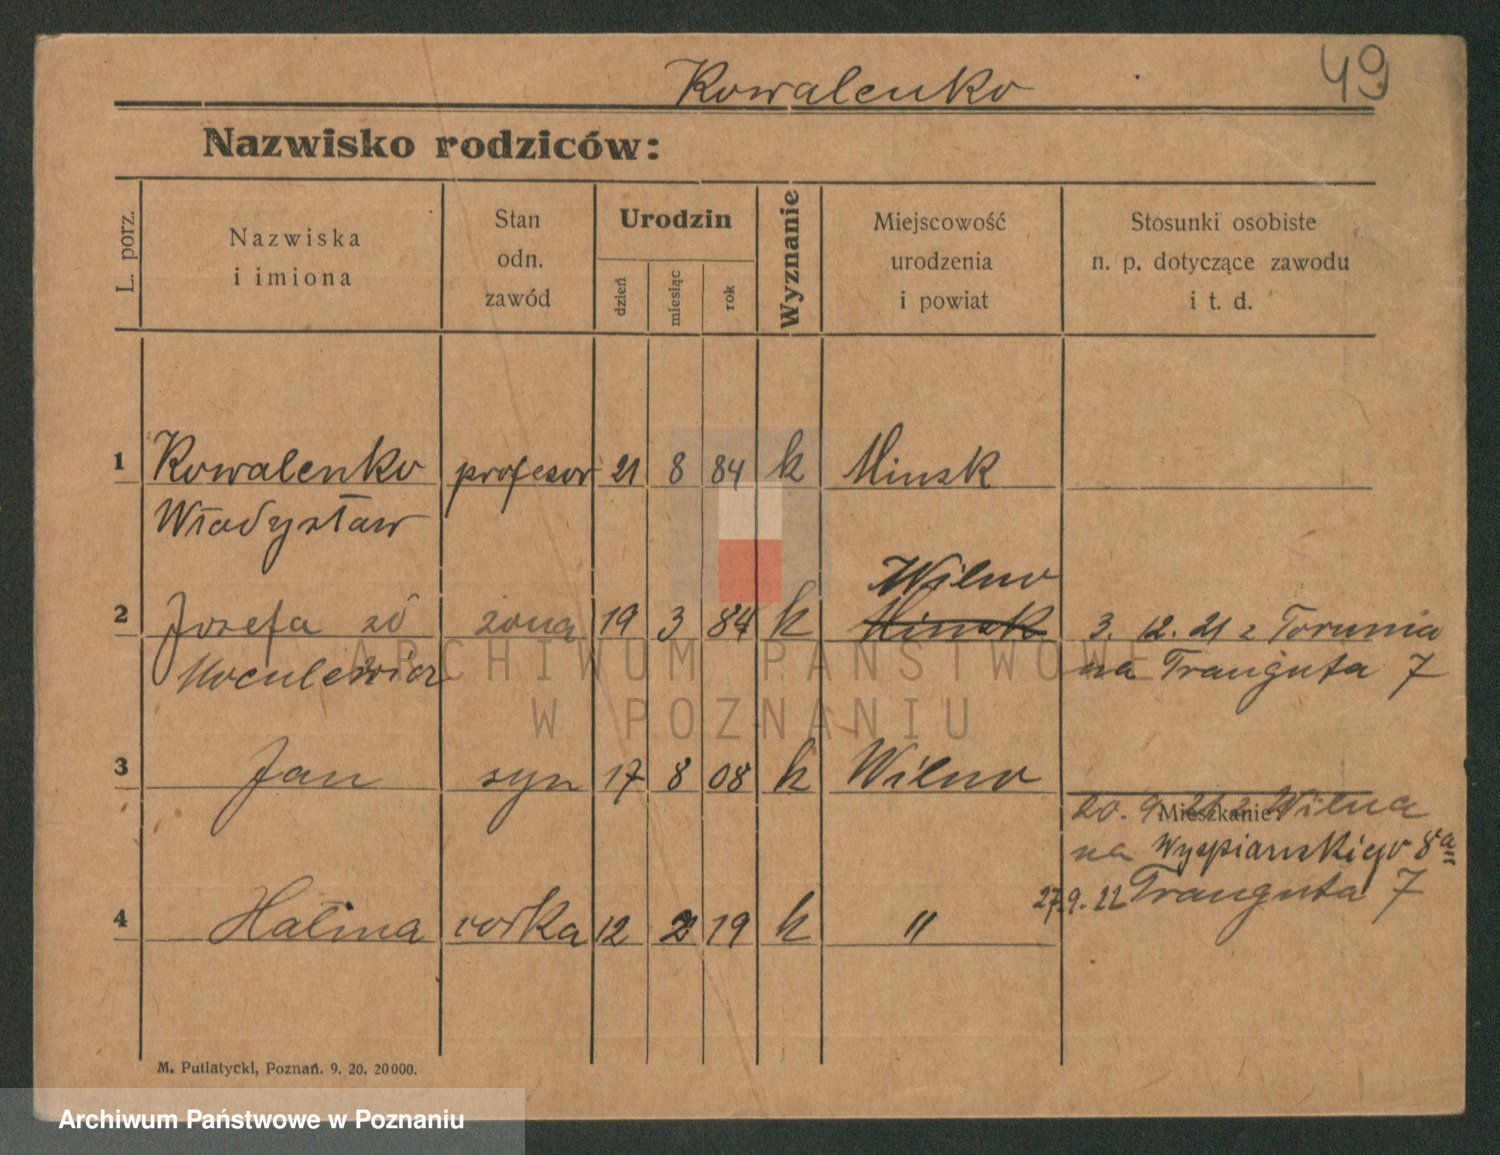 Kowalenko
49
Nazwisko rodziców:
L. porz.
Nazwiska
i imiona
Stan
odn.
zawód
Urodzin
dzień
miesiąc
rok
Wyznanie
Miejscowość
urodzenia
i powiat
Stosunki osobiste
n. p. dotyczące zawodu
i t. d.
1 Kowalenko profesor 21 8 84 k Minsk
Władysław
Wilno
2 Jozefa zd żona 19 3 84 k Minsk 3. 12. 21 z Torunia
Moculewicz na Trauguta 7
3 Jan syn 17 8 08 k Wilno
Mieszkanie:
20. 9. 21 z Wilna
na Wyspianskiego 8a
27.9.22 Trauguta 7
4 Halina córka 12 2 19 k "
M. Putiatycki, Poznań. 9. 20. 20000.
ARCHIWUM PAŃSTWOWE
W POZNANIU
Archiwum Państwowe w Poznaniu